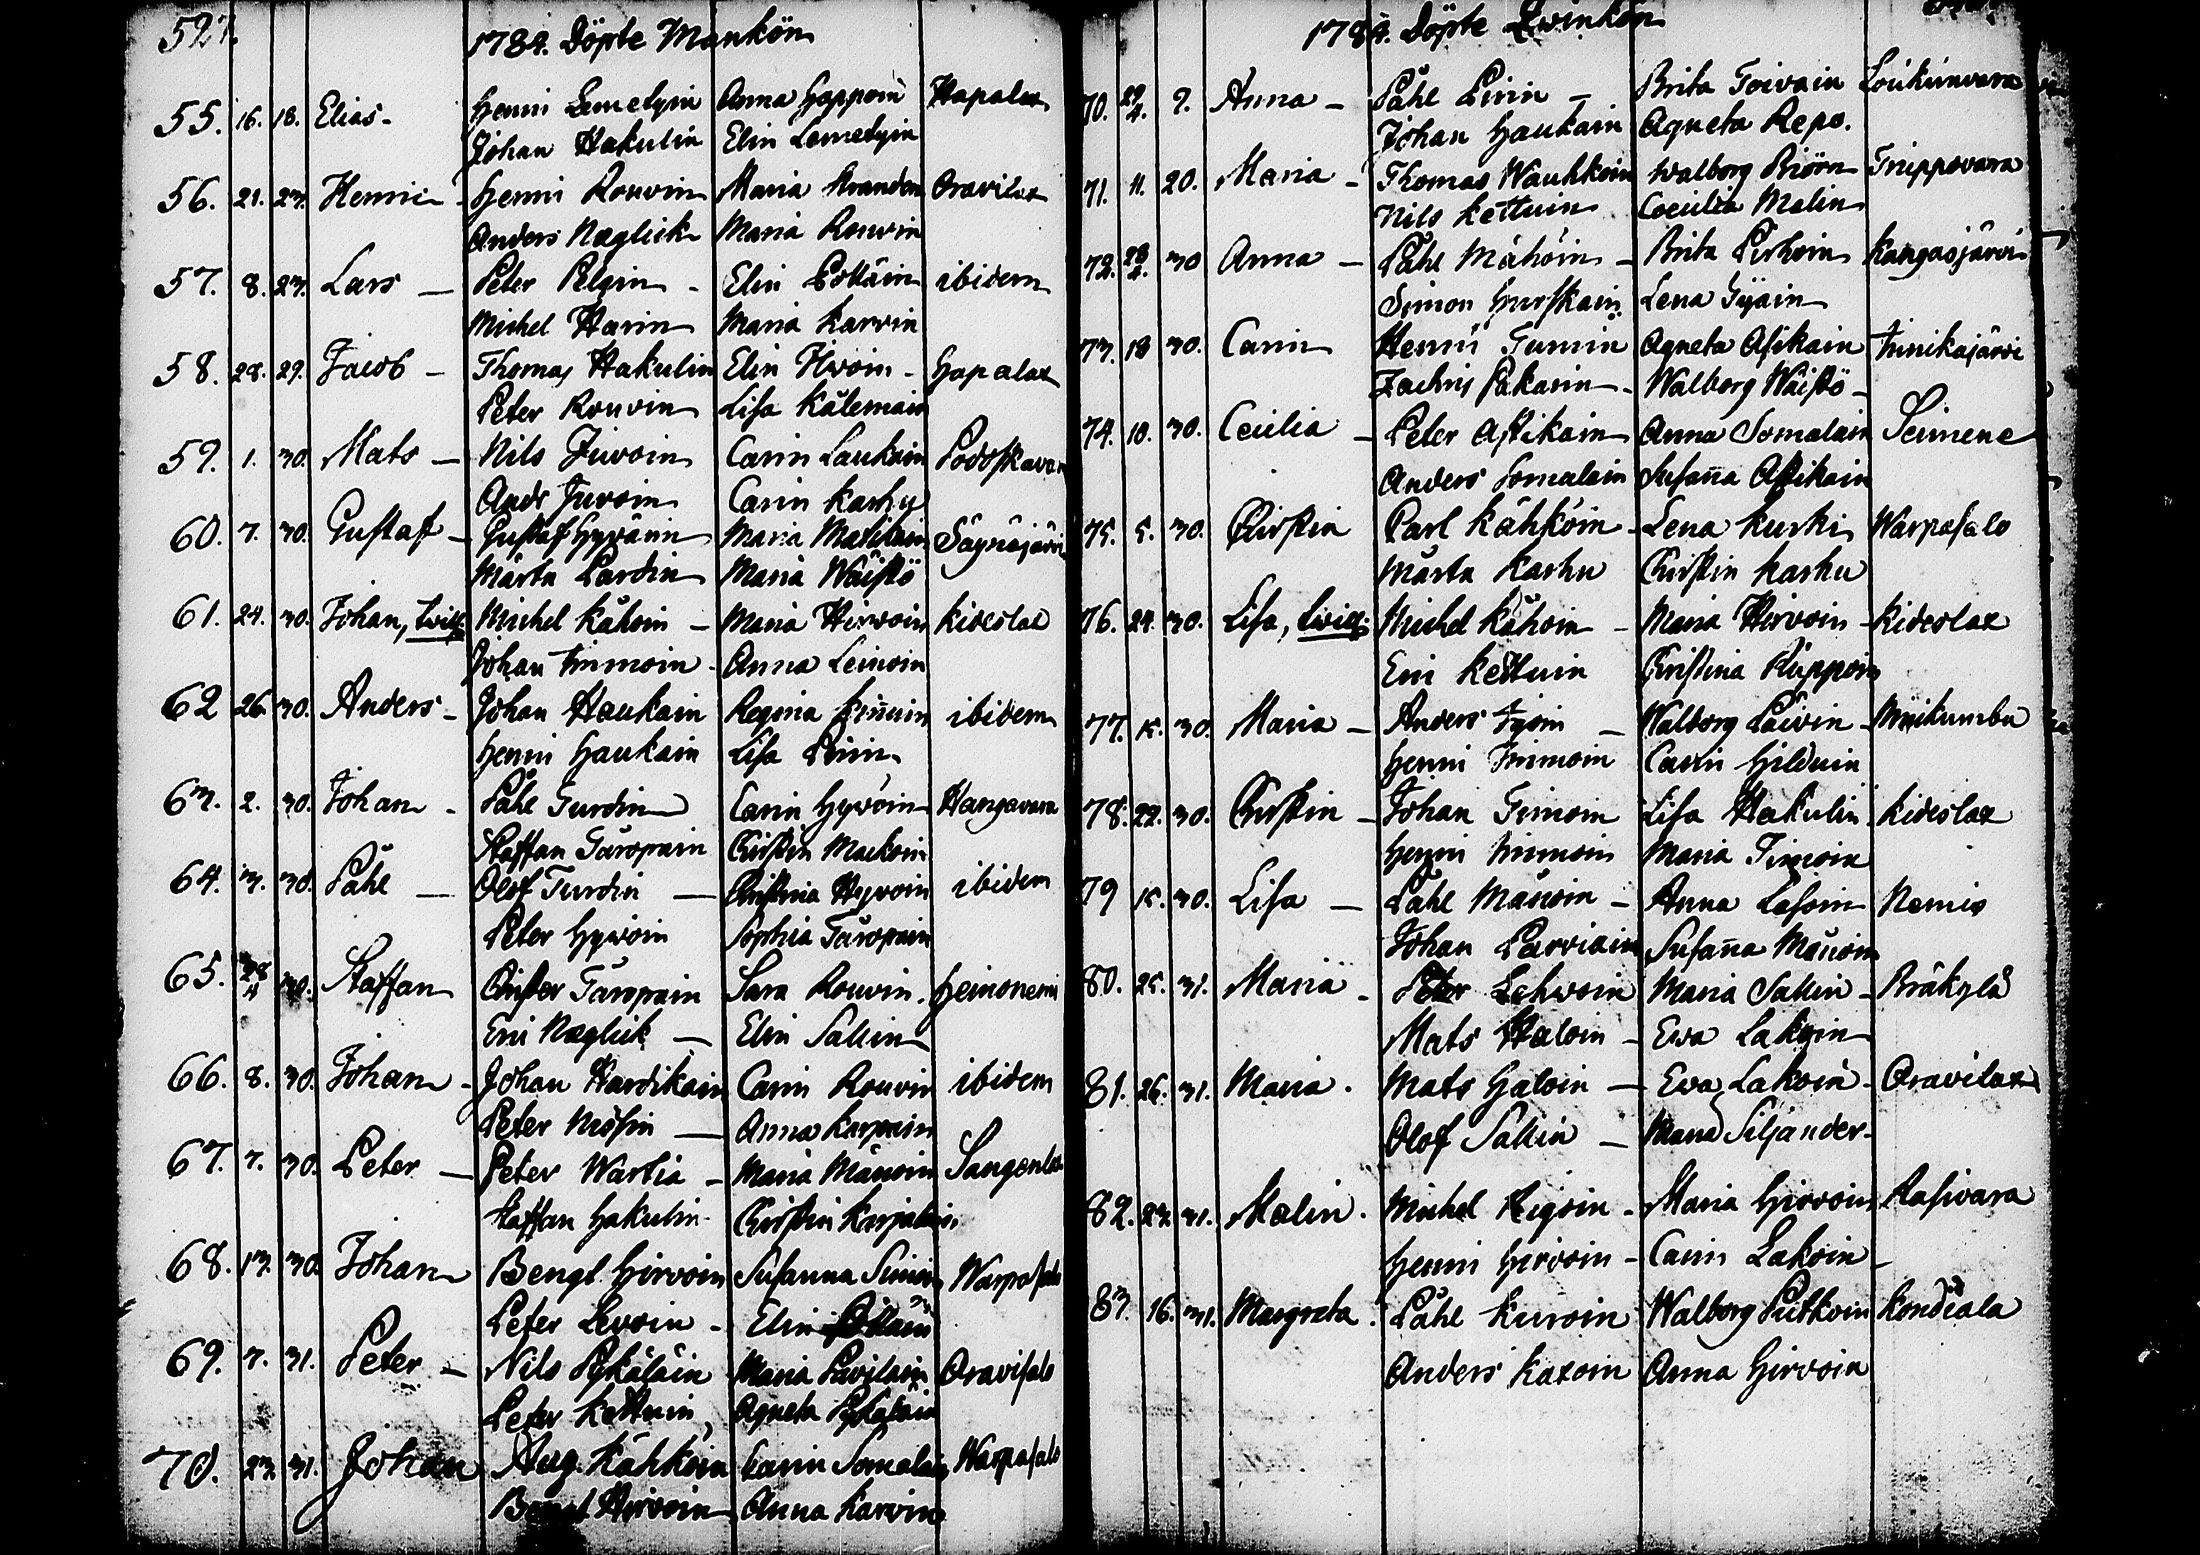 527.
1784. Döpte Mankön
55. 16. 18. Elias - Henric Lemetyin Anna Happoin Hapalax
Johan Hakulin Elin Lemetyin
56. 21. 27. Henric - Henric Rouvin Maria Oravilax
Anders Næglick Maria Rouvin
57. 8. 27. Lars - Peter Pelgin - Elin ibidem
Michel Harin Maria Karvin
58. 28. 29. Jacob - Thomas Hakulin Elin Hapalax
Peter Rouvin Lisa
59. 1. 30. Mats - Nils Juvoin Carin Laukain
Andr Juvoin Carin Karhu
60. 7. 30. Gustaf - Gustaf Maria Sägnäjärvi
Märta Pardin Maria Wäistö
61. 24. 30. Johan, twill. Michel Kähoin - Maria Hirvoin Kideslax
Johan Immoin - Anna Leinoin
62 26. 30. Anders - Johan Haukain Regina Kinnuin ibidem
Henric Haukain Lisa Pirin
63. 2. 30. Johan - Påhl Turdin Carin Hyvöin Kangavara
Staffan Taropain Christin
64. 3. 30. Påhl - Olof Turdin - Christina Hyvöin ibidem
Peter Hyvöin Sophia Taropain
65. 28/4 30. Staffan Christer Taropain Sara Rouvin. Heinonemi
Eric Næglick - Elin Sallin
66. 8. 30. Johan - Johan Hardikain Carin Rouvin ibidem
Peter Anna
67. 7. 30. Peter - Peter Wartia - Maria Mänoin
Staffan Hakulin. Christin
68. 13. 30. Johan Bengt Hirvoin Susanna Warpasalo
Peter Levoin - Elin
69. 7. 31. Peter - Nils Pykäläin Maria Oravisalo
Peter Kettuin, Agneta Pykäläin
70. 23. 31. Johan Aug. Kähköin Carin Somalain Warpasalo
Bengt Hirvoin Anna Karvin
1784. Döpte Qvinkön
70. 29/4. 9. Anna - Påhl Pirin - Brita Toivain
Johan Haukain Agneta Repo.
71. 11. 20. Maria - Thomas Wauhkoin Walborg Biörn
Nils Kettuin Coecilia Malin
72. 28/2. 30 Anna - Påhl Mähöin - Brita Kangasjärvi
Simon Hurskain Lena
73. 18 30. Carin Henric Turuin Agneta Asikain
Zachris Pakarin - Walborg Wäistö -
74. 18. 30. Cecilia - Peter Astikain Anna Somalain
Anders Somalain Susanna Astikain
75. 5. 30. Christin Carl Kähköin - Lena Kurki Warpasalo
Märta Karhu Christin Karhu
76. 24. 30. Lisa, twill. Michel Kähoin - Maria Hirvoin - Kideslax
Eric Kettuin Christina
77. 15. 30. Maria - Anders - Walborg Päivin -
Henric Immoin Carin Hilduin
78. 22. 30. Christin - Johan Timoin Lisa Hakulin. Kideslax
Henric Immoin Maria Timoin
79 15. 30. Lisa - Påhl Mänoin - Anna Lassin Niemis
Johan Parviain Susanna Mänoin
80. 25. 31. Maria - Peter Lehvoin Maria Sallin - Bräkylä
Mats Haloin - Eva Lakoin
81. 26. 31. Maria. Mats Haloin - Eva Lakoin - Oravilax
Olof Sallin - Maria Siljander -
82. 27. 31. Malin. Michel - Maria Hirvoin Rasivara
Henric Hirvoin - Carin Lakoin -
83. 16. 31. Margreta. Påhl Kuroin Walborg Putkoin Kondiala
Anders Kaxoin Anna Hirvoin